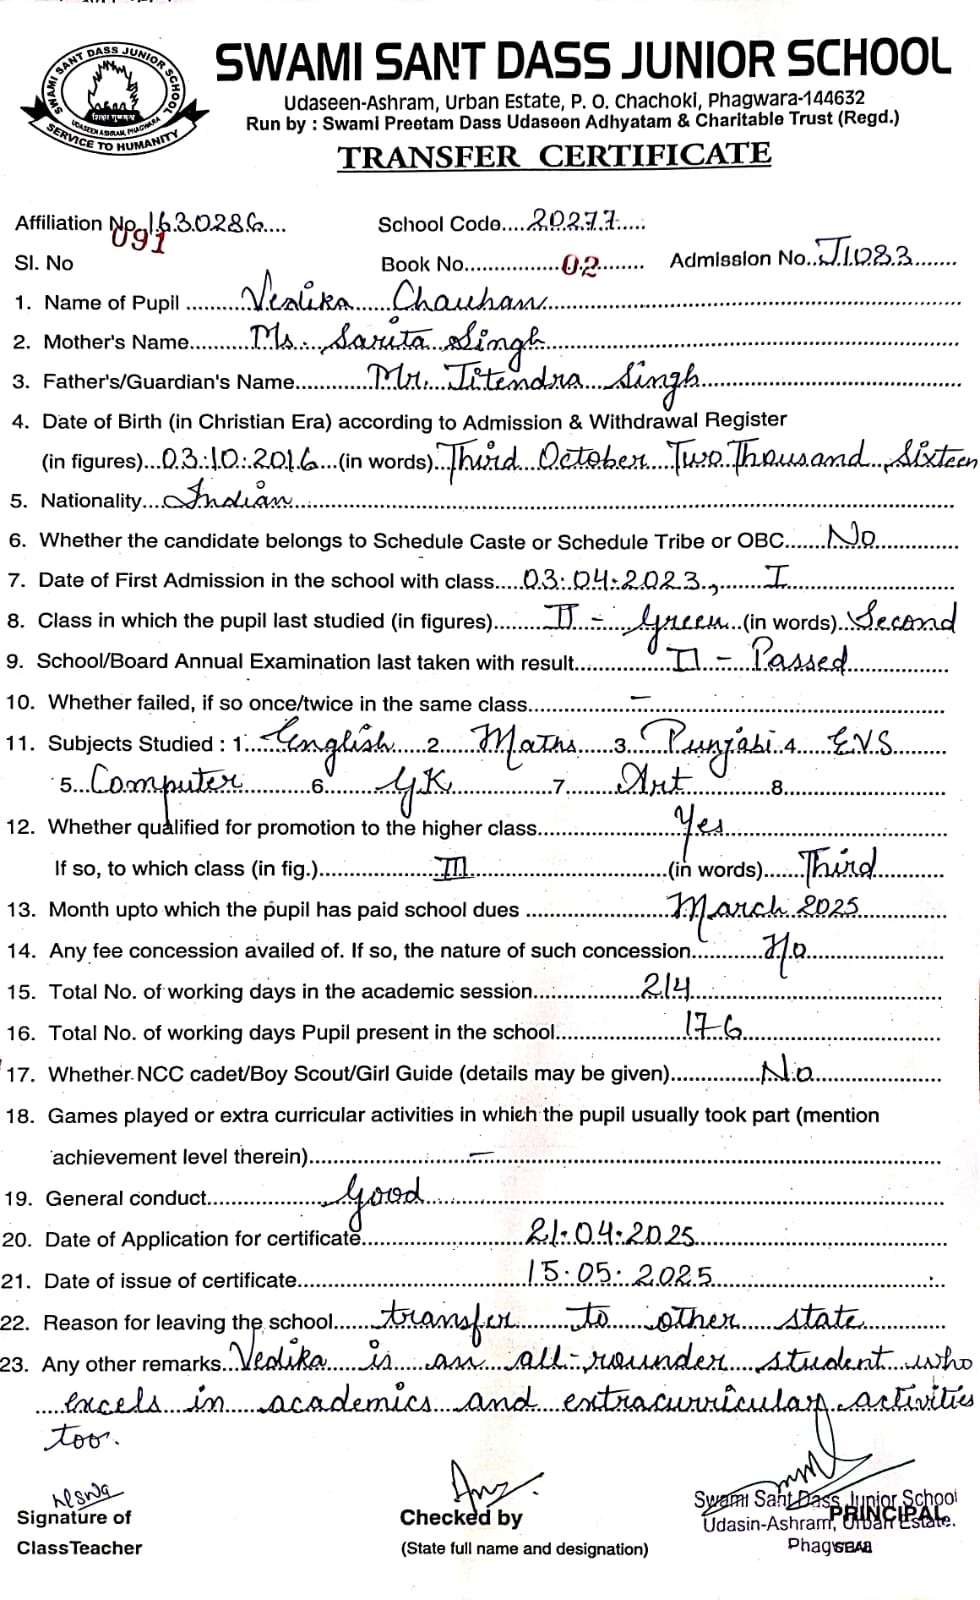 SWAMI SANT DASS JUNIOR SCHOOL
SWAMI SANT DASS JUNIOR SCHOOL
UDASEEN ASHRAM, PHAGWARA
SERVICE TO HUMANITY
Udaseen-Ashram, Urban Estate, P. O. Chachoki, Phagwara-144632
Run by : Swami Preetam Dass Udaseen Adhyatam & Charitable Trust (Regd.)
TRANSFER CERTIFICATE
Affiliation No. 1630286.... School Code....20277.....
Sl. No 091 Book No................02........ Admission No..J1083.......
1. Name of Pupil ........Vedika.....Chauhan........
2. Mother's Name..........Ms. Sarita Singh........
3. Father's/Guardian's Name...........Mr. Jitendra Singh........
4. Date of Birth (in Christian Era) according to Admission & Withdrawal Register
(in figures)...03.10.2016...(in words)..Third October Two Thousand Sixteen
5. Nationality....Indian........
6. Whether the candidate belongs to Schedule Caste or Schedule Tribe or OBC......No........
7. Date of First Admission in the school with class....03.04.2023,......I........
8. Class in which the pupil last studied (in figures).......II - Green...(in words)..Second
9. School/Board Annual Examination last taken with result............II - Passed........
10. Whether failed, if so once/twice in the same class..........–........
11. Subjects Studied : 1..English....2...Maths....3..Punjabi.4...EVS......
5...Computer.........6......GK.........7......Art.........8........
12. Whether qualified for promotion to the higher class............Yes........
If so, to which class (in fig.)............III........(in words).....Third........
13. Month upto which the pupil has paid school dues ............March 2025........
14. Any fee concession availed of. If so, the nature of such concession.........No........
15. Total No. of working days in the academic session............214........
16. Total No. of working days Pupil present in the school............176........
17. Whether NCC cadet/Boy Scout/Girl Guide (details may be given)..........No........
18. Games played or extra curricular activities in which the pupil usually took part (mention
achievement level therein)............–........
19. General conduct............Good........
20. Date of Application for certificate............21.04.2025........
21. Date of issue of certificate............15.05.2025........
22. Reason for leaving the school......transfer to other state........
23. Any other remarks..Vedika is an all-rounder student who
....excels in academics and extracurricular activities
too.
Signature of
ClassTeacher
Checked by
(State full name and designation)
Swami Sant Dass Junior School
PRINCIPAL
Udasin-Ashram, Urban Estate.
Phagwara
SEAL